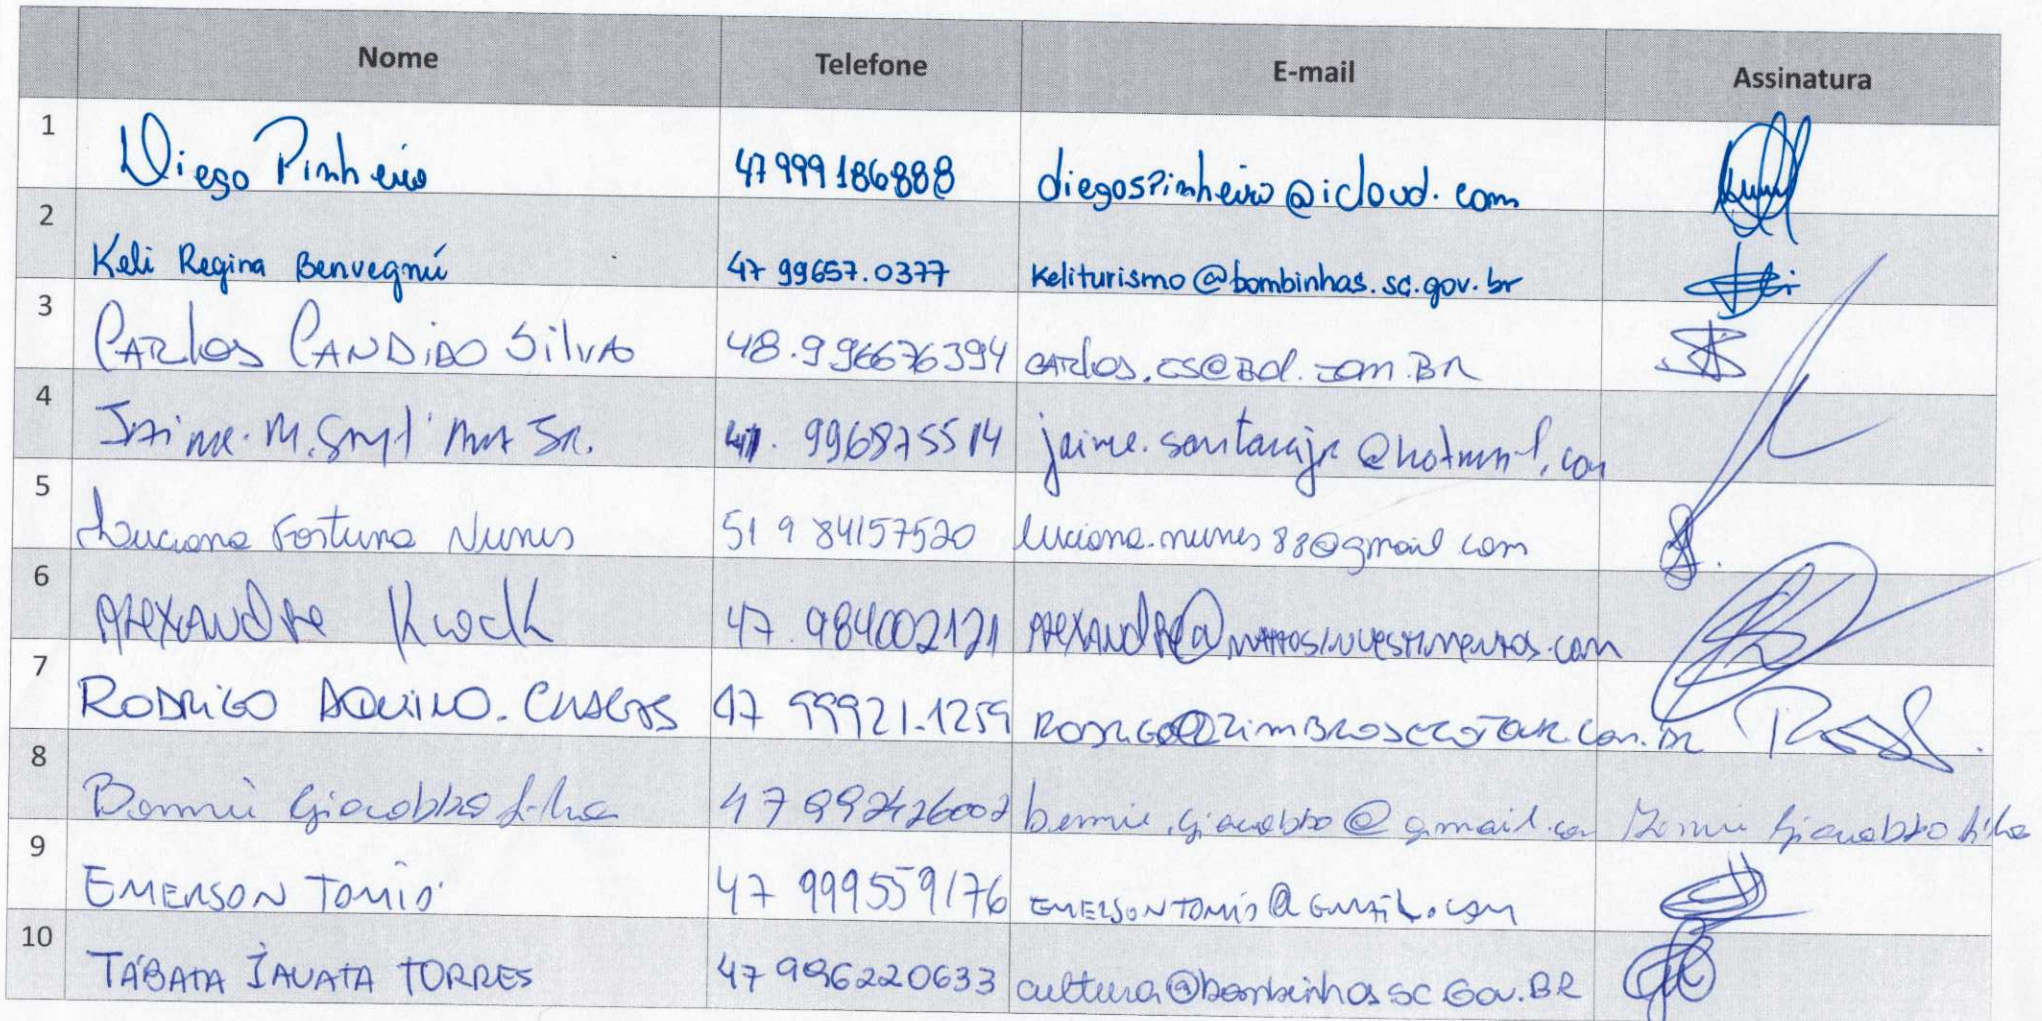 Nome Telefone E-mail Assinatura
1 Diego Pinheiro 47 999186888 diegospinheiro@icloud.com
2 Keli Regina Benvegnú 47 99657.0377 Keliturismo@bombinhas.sc.gov.br
3 CARlos CANDiDO SilvA 48.996676394 CARlos.CS@Bol.com.BR
4 Jaime. M. Jr. 996875514 jaime.santanajr@hotmail.com
5 Luciana Fortuna Nunes 51 9 84157520 luciana.nunes88@gmail com
6 Alexandre 47. 984002121 Alexandre@mattosinvestimentos.com
7 RODRiGO AQUINO. CHAGAS 47 99921.1259 RODRiGO@ZimBROSECOTOUR.com.BR
8 Giacobbo filho 47 992426002 giacobbo@gmail.com Giacobbo filho
9 EMERSON TOMIO 47 999559176 EMERSONTOMIO@GMAIL.com
10 TÁBATA TORRES 47 996220633 cultura@bombinhas sc Gov.BR